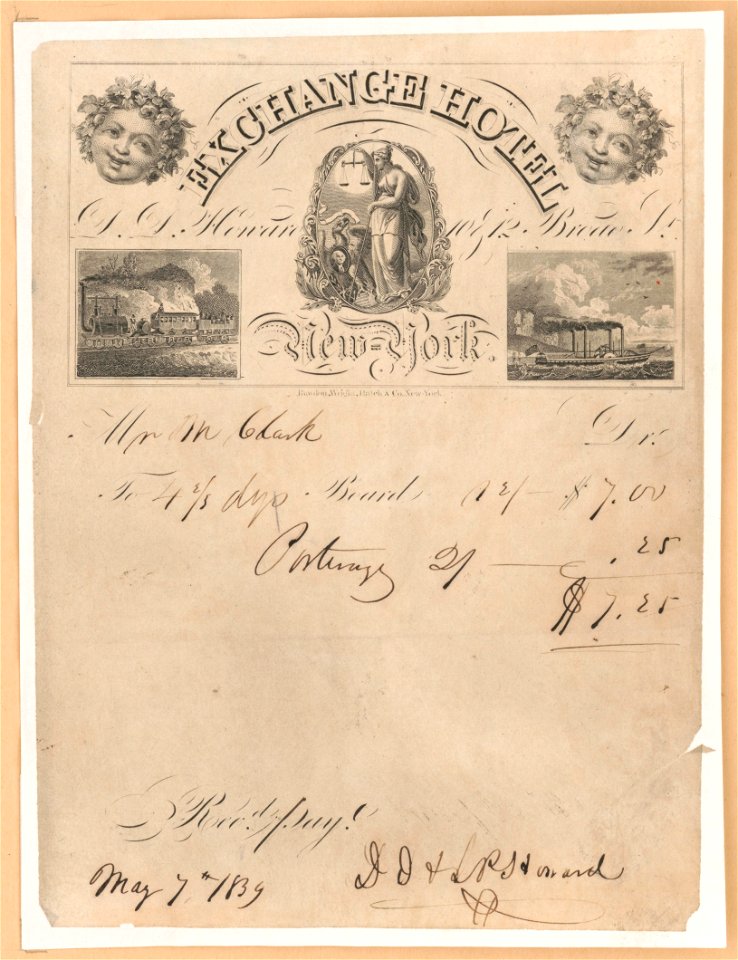 EXCHANGE HOTEL
Howard 10 & 12 Broad St.
New=York.
Rawdon, Wright, Hatch & Co. New-York.
Mr M Clark Dr.
To 4 2/3 dys Board 12/- $ 7.00
Porterage 2/ — .25
$ 7.25
Rec'd pay't
May 7th 1839 D D & S P Howard